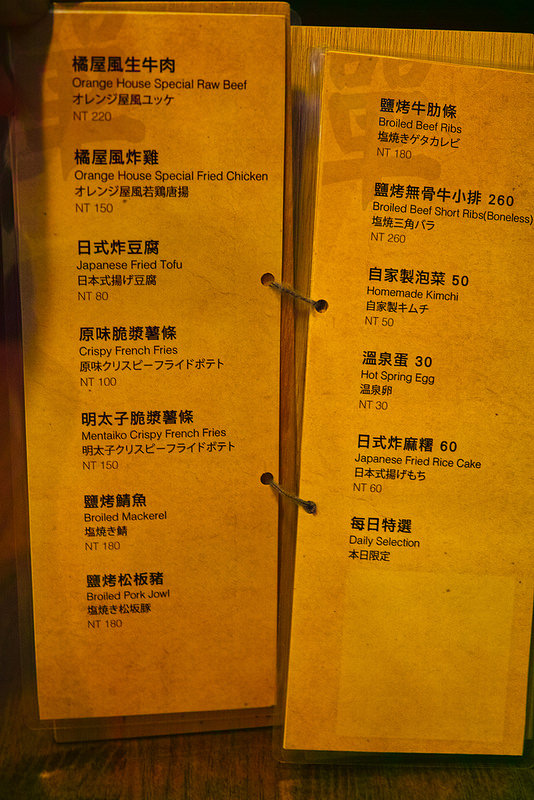 橘屋風生牛肉
Orange House Special Raw Beef
オレンジ屋風ユッケ
NT 220
橘屋風炸雞
Orange House Special Fried Chicken
オレンジ屋風若鶏唐揚
NT 150
日式炸豆腐
Japanese Fried Tofu
日本式揚げ豆腐
NT 80
原味脆漿薯條
Crispy French Fries
原味クリスピーフライドポテト
NT 100
明太子脆漿薯條
Mentaiko Crispy French Fries
明太子クリスピーフライドポテト
NT 150
鹽烤鯖魚
Broiled Mackerel
塩焼き鯖
NT 180
鹽烤松板豬
Broiled Pork Jowl
塩焼き松坂豚
NT 180
單
鹽烤牛肋條
Broiled Beef Ribs
塩焼きゲタカレビ
NT 180
鹽烤無骨牛小排 260
Broiled Beef Short Ribs(Boneless)
塩焼三角バラ
NT 260
自家製泡菜 50
Homemade Kimchi
自家製キムチ
NT 50
溫泉蛋 30
Hot Spring Egg
温泉卵
NT 30
日式炸麻糬 60
Japanese Fried Rice Cake
日本式揚げもち
NT 60
每日特選
Daily Selection
本日限定